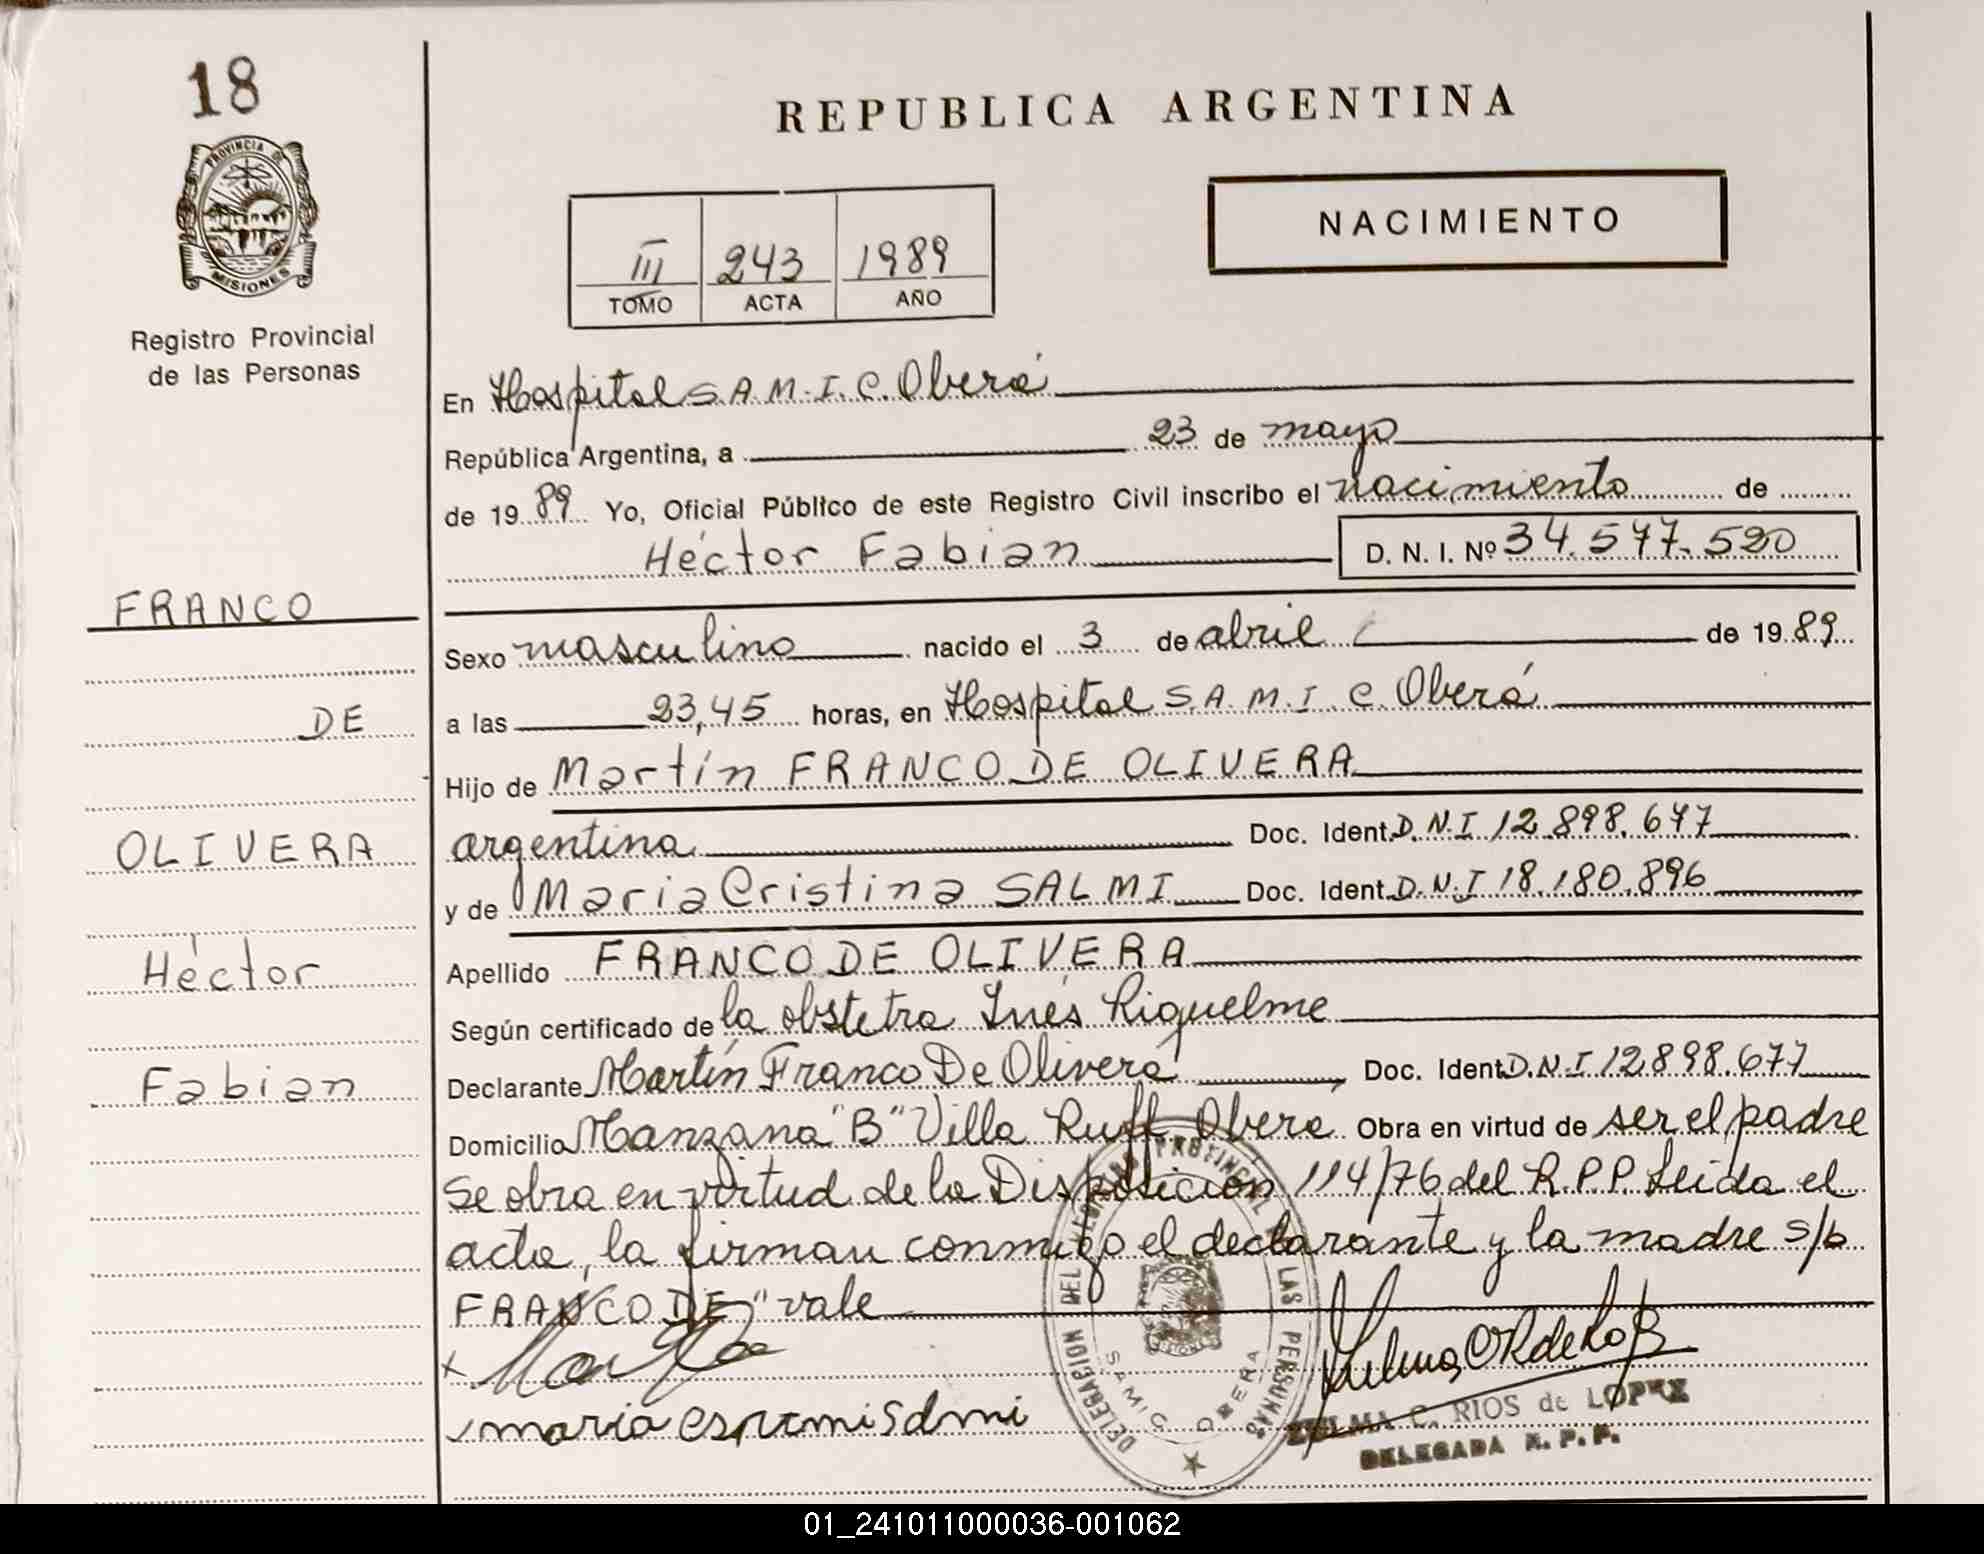 18
PROVINCIA DE
MISIONES
Registro Provincial
de las Personas
FRANCO
DE
OLIVERA
Héctor
Fabian
REPUBLICA ARGENTINA
NACIMIENTO
III 243 1989
TOMO ACTA AÑO
En Hospital S.A.M.I.C. Oberá
República Argentina, a 23 de mayo
de 19 89 Yo, Oficial Público de este Registro Civil inscribo el nacimiento de
Héctor Fabian D. N. I. Nº 34.577.520
Sexo masculino nacido el 3 de abril de 19 89
a las 23,45 horas, en Hospital S.A.M.I.C. Oberá
Hijo de Martín FRANCO DE OLIVERA
argentina Doc. Ident. D.N.I 12.898.677
y de Maria Cristina SALMI Doc. Ident. D.N.I 18.180.896
Apellido FRANCO DE OLIVERA
Según certificado de la obstetra Inés Riquelme
Declarante Martín Franco De Olivera Doc. Ident. D.N.I 12.898.677
Domicilio Manzana "B" Villa Ruff Oberá Obra en virtud de ser el padre
Se obra en virtud de la Disposición 114/76 del R.P.P. Leida el
acta, la firman conmigo el declarante y la madre s/b
FRANCO DE" vale
DELEGACION DEL REGISTRO PROVINCIAL DE LAS PERSONAS
SAMIC OBERA
ZULMA C. RIOS de LOPEZ
DELEGADA R. P. P.
01_241011000036-001062